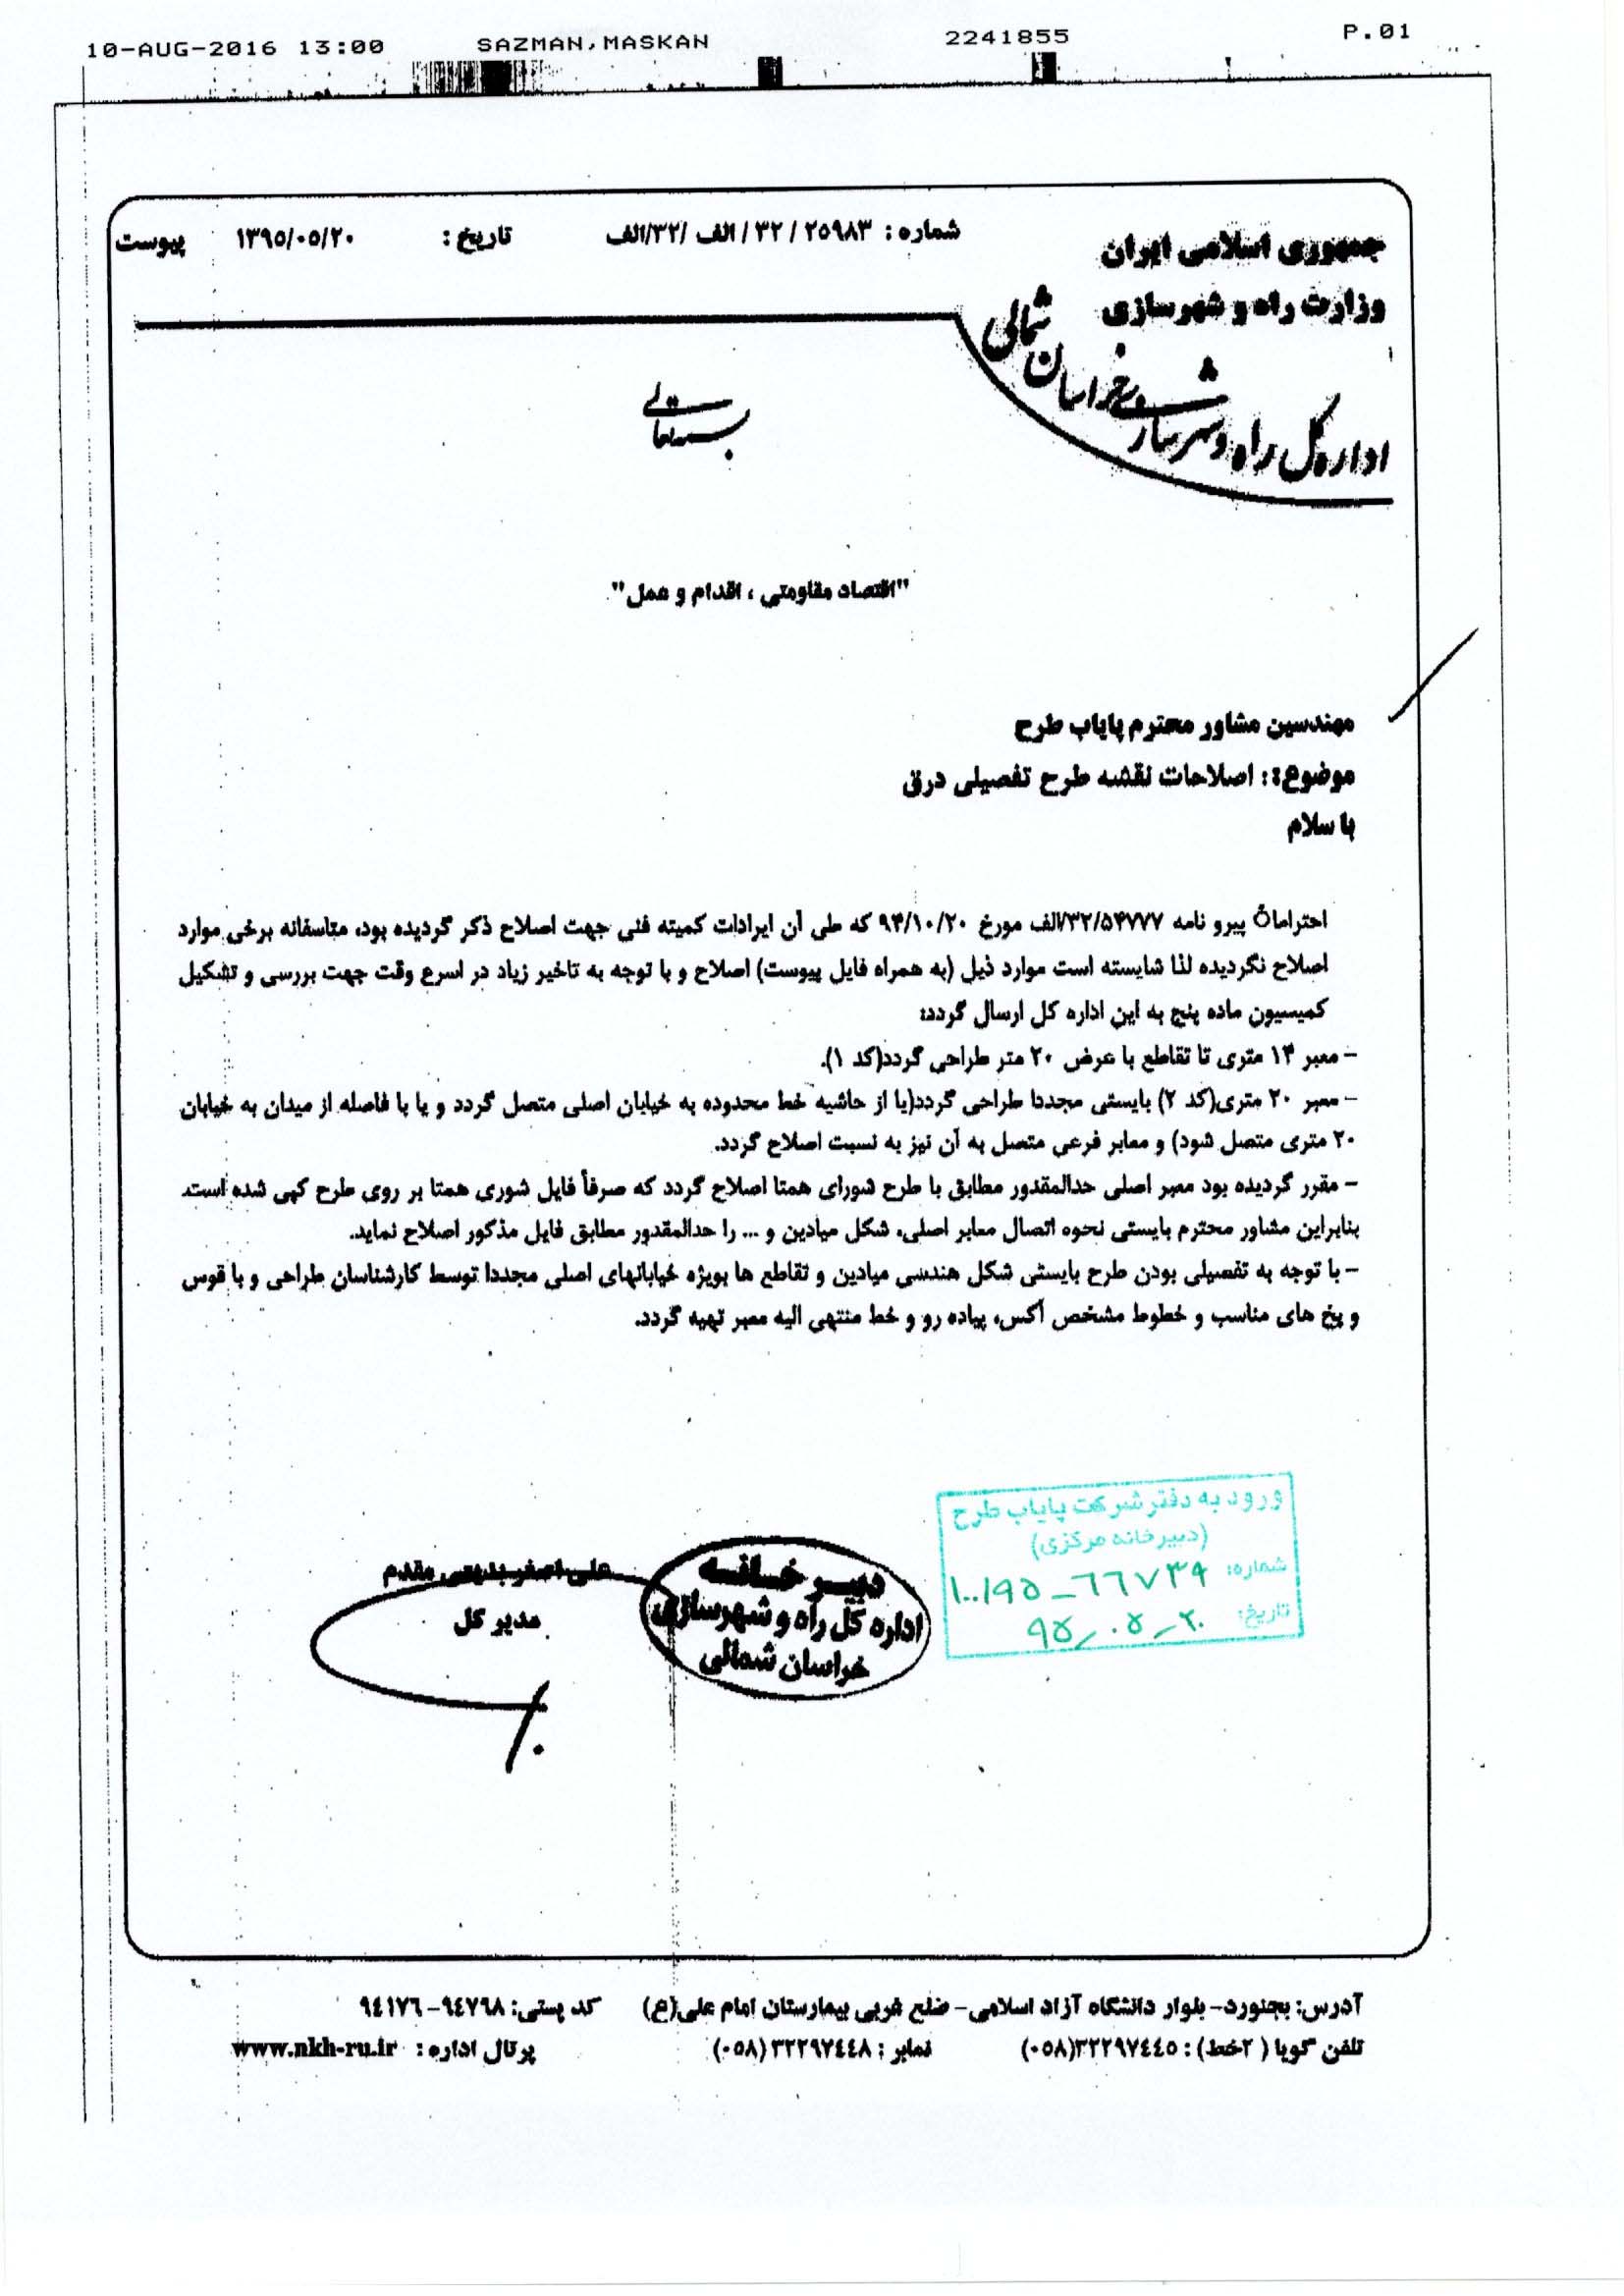 10-AUG-2016 13:00 SAZMAN,MASKAN 2241855 P.01
جمهوری اسلامی ایران
وزارت راه و شهرسازی
اداره کل راه و شهرسازی خراسان شمالی
شماره : ۲۵۹۸۳ / ۳۲ / الف /۳۲/الف تاریخ : ۱۳۹۵/۰۵/۲۰ پیوست
بسمه تعالی
"اقتصاد مقاومتی ، اقدام و عمل".
مهندسین مشاور محترم پایاب طرح
موضوع:: اصلاحات نقشه طرح تفصیلی درق
با سلام
احتراماً پیرو نامه ۳۲/۵۴۷۷۷/الف مورخ ۹۴/۱۰/۲۰ که طی آن ایرادات کمیته فنی جهت اصلاح ذکر گردیده بود، متاسفانه برخی موارد
اصلاح نگردیده لذا شایسته است موارد ذیل (به همراه فایل پیوست) اصلاح و با توجه به تاخیر زیاد در اسرع وقت جهت بررسی و تشکیل
کمیسیون ماده پنج به این اداره کل ارسال گردد:
- معبر ۱۴ متری تا تقاطع با عرض ۲۰ متر طراحی گردد(کد ۱).
- معبر ۲۰ متری(کد ۲) بایستی مجددا طراحی گردد(یا از حاشیه خط محدوده به خیابان اصلی متصل گردد و یا با فاصله از میدان به خیابان
۲۰ متری متصل شود) و معابر فرعی متصل به آن نیز به نسبت اصلاح گردد.
- مقرر گردیده بود معبر اصلی حدالمقدور مطابق با طرح شورای همتا اصلاح گردد که صرفاً فایل شوری همتا بر روی طرح کپی شده است.
بنابراین مشاور محترم بایستی نحوه اتصال معابر اصلی، شکل میادین و ... را حدالمقدور مطابق فایل مذکور اصلاح نماید.
- با توجه به تفصیلی بودن طرح بایستی شکل هندسی میادین و تقاطع ها بویژه خیابانهای اصلی مجددا توسط کارشناسان طراحی و با قوس
و پخ های مناسب و خطوط مشخص آکس، پیاده رو و خط منتهی الیه معبر تهیه گردد.
ورود به دفتر شرکت پایاب طرح
(دبیرخانه مرکزی)
شماره: ۱۰۰/۹۵-۶۶۷۳۹
تاریخ: ۹۵-۰۵-۲۰
دبیرخانه
اداره کل راه و شهرسازی
خراسان شمالی
علی اصغر بدیهی مقدم
مدیر کل
آدرس: بجنورد- بلوار دانشگاه آزاد اسلامی- ضلع غربی بیمارستان امام علی(ع) کد پستی: ۹٤۷٦۸-۹٤۱۷٦
تلفن گویا ( ۲خط) : ۳۲۲۹۷٤٤٥(۰٥۸) نمابر : ۳۲۲۹۷٤٤۸(۰٥۸) پرتال اداره : www.nkh-ru.ir